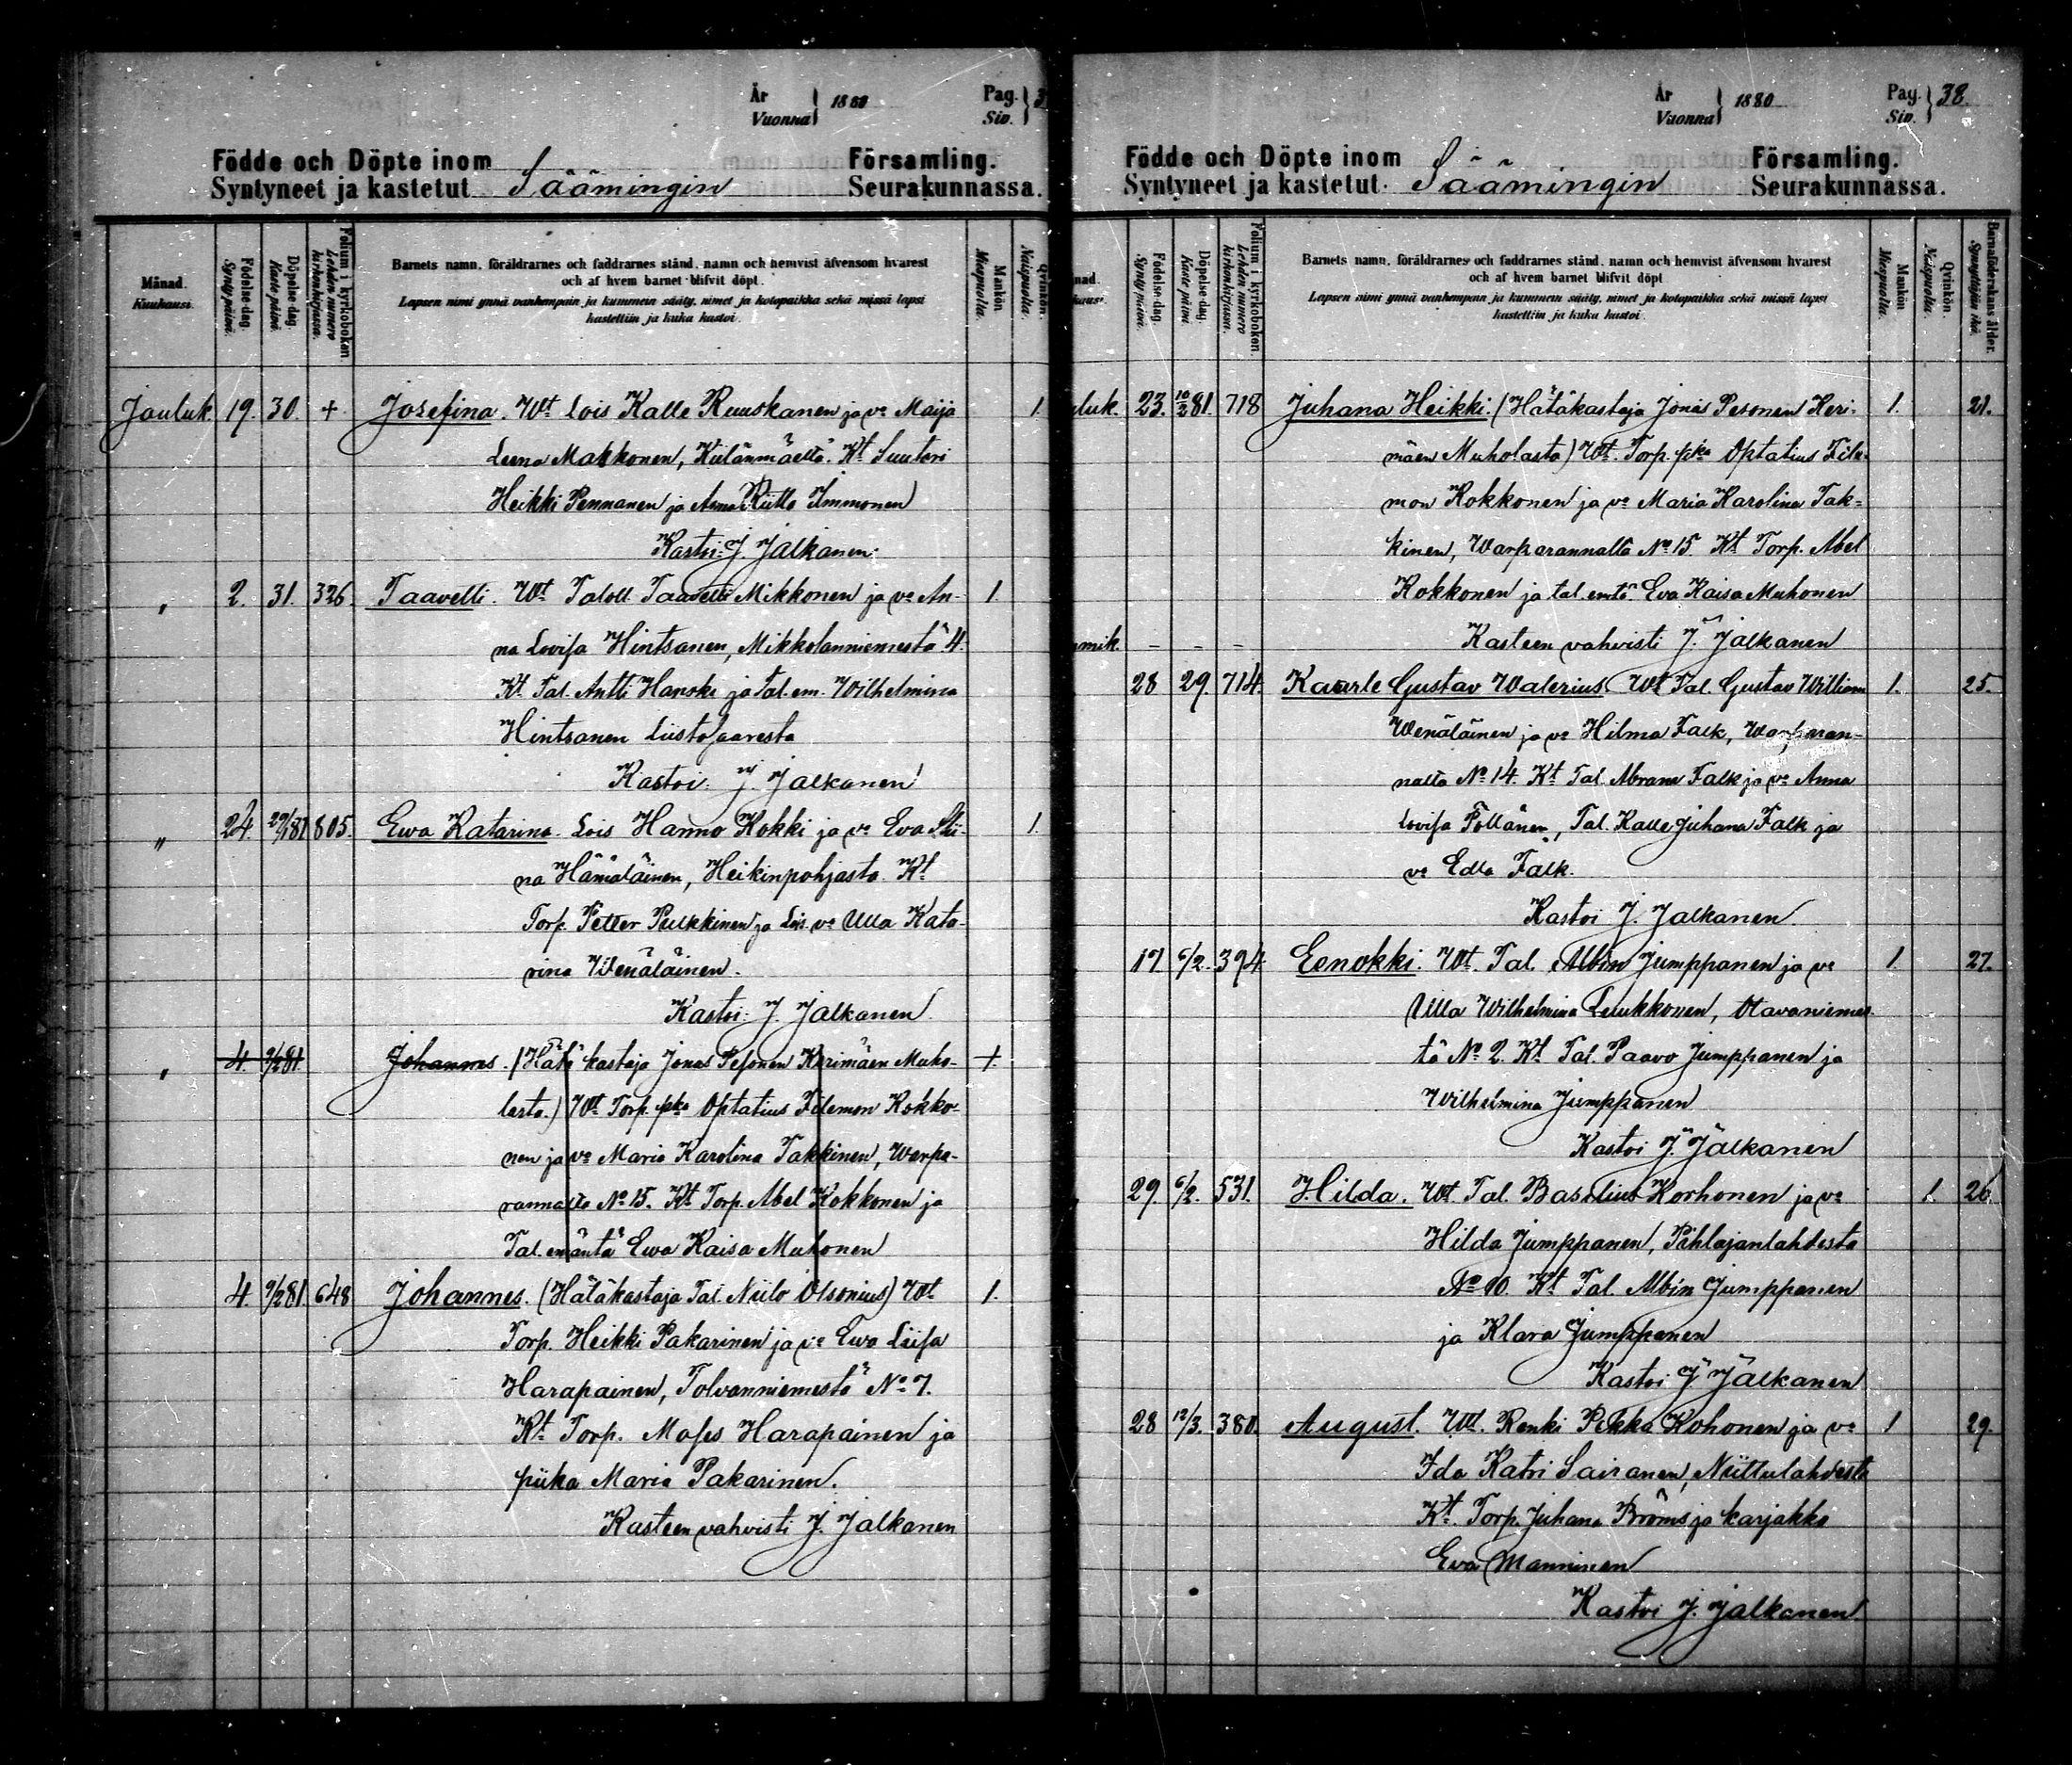 År
Vuonna } 1880
Pag.
Siv. } 3
Födde och Döpte inom
Syntyneet ja kastetut Säämingin
Församling.
Seurakunnassa.
Månad.
Kuukausi.
Födelse-dag.
Synty päivä.
Döpelse-dag.
Kaste päivä.
Folium i kyrkoboken.
Lehden numero kirkonkirjassa.
Barnets namn, föräldrarnes och faddrarnes stånd, namn och hemvist äfvensom hvarest
och af hvem barnet blifvit döpt.
Lapsen nimi ynnä vanhempain ja kummein sääty, nimet ja kotopaikka sekä missä lapsi
kastettiin ja kuka kastoi.
Mankön
Miespuolia.
Qvinkön.
Naispuolia.
Jouluk. 19. 30. + Josefina. Wt Lois Kalle Ruuskanen ja vo Maija 1.
Leena Makkonen, Kiilänmäeltä. Kt Suutari
Heikki Pennanen ja Anna Riitta Immonen
Kastoi: J. Jalkanen.
" 2. 31. 326. Taavetti. Wt Taloll. Taavetti Mikkonen ja vo An- 1.
na Lovisa Hintsanen, Mikkolanniemestä 4.
Kt Tal. Antti Hanski ja Tal. em. Wilhelmina
Hintsanen Liistosaaresta
Kastoi: J. Jalkanen
" 24. 29/1 81 805. Ewa Katarina. Lois Hanno Kokki ja vo Eva Stii- 1.
na Hämäläinen, Heikinpohjasta. Kt
Torp. Petter Pulkkinen ja Lois. vo Ulla Kata-
rina Wenäläinen.
Kastoi: J. Jalkanen
" 4. 9/2 81 Johannes. (Hätä kastaja Jonas Pesonen Kerimäen Muho- +
lasta.) Wt Torp. pka Optatius Filemon Kokko-
nen ja vo Maria Karolina Takkinen, Warpa-
rannalta No 15. Kt Torp. Abel Kokkonen ja
Tal. emäntä Ewa Kaisa Muhonen
4. 9/2 81. 648 Johannes. (Hätäkastaja Tal. Niilo Olsonius) Wt 1.
Torp. Heikki Pakarinen ja vo Ewa Liisa
Harapainen, Tolvanniemestä No 7.
Kt Torp. Moses Harapainen ja
piika Maria Pakarinen.
Kasteen vahvisti J. Jalkanen
År
Vuonna } 1880
Pag.
Siv. } 38.
Födde och Döpte inom
Syntyneet ja kastetut Säämingin
Församling.
Seurakunnassa.
nad.
kausi.
Födelse-dag.
Synty päivä.
Döpelse-dag.
Kaste päivä.
Folium i kyrkoboken.
Lehden numero kirkonkirjassa.
Barnets namn, föräldrarnes och faddrarnes stånd, namn och hemvist äfvensom hvarest
och af hvem barnet blifvit döpt
Lapsen nimi ynnä vanhempain ja kummein sääty, nimet ja kotopaikka sekä missä lapsi
kastettiin ja kuka kastoi.
Mankön
Miespuolia.
Qvinkön.
Naispuolia.
Barnaföderskans ålder.
Synnyttäjän ikä.
luk. 23. 10/2 81. 718 Juhana Heikki. (Hätäkastaja Jonas Pesonen Keri- 1. 21.
mäen Muholasta) Wt. Torp. pka Optatius File-
mon Kokkonen ja vo Maria Karolina Tak=
kinen, Warparannalta No 15. Kt Torp. Abel
Kokkonen ja tal. emtä Eva Kaisa Muhonen
mik. - - - Kasteen vahvisti J. Jalkanen
28 29. 714. Kaarle Gustav Walerius. Wt Tal. Gustav William 1. 25.
Wenäläinen ja vo Hilma Falk, Warparan-
nalta No 14. Kt Tal. Abram Falk ja vo Anna
Lovisa Pöllänen, Tal. Kalle Juhana Falk ja
vo Edla Falk.
Kastoi J. Jalkanen.
17 6/2. 394. Eenokki. Wt. Tal. Albin Jumppanen ja vo 1. 27.
Ulla Wilhelmina Leukkonen, Otavaniemes-
tä No 2. Kt Tal. Paavo Jumppanen ja
Wilhelmina Jumppanen
Kastoi J. Jalkanen
29. 6/2. 531. Hilda. Wt. Tal. Basilius Korhonen ja vo 1. 26.
Hilda Jumppanen, Pihlajanlahdesta
No 10. Kt Tal. Albin Jumppanen
ja Klara Jumppanen
Kastoi J Jalkanen
28 12/3. 380. August. Wt. Renki Pekka Kohonen ja vo 1 29.
Ida Katri Sairanen, Niittulahdesta
Kt. Torp. Juhana Broms ja karjakko
Eva Manninen
Kastoi J. Jalkanen